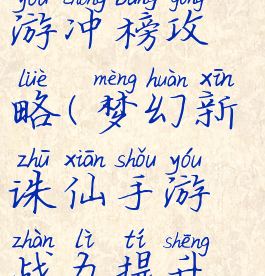 yóu chōng bǎng gōng
游冲榜攻
lüè mèng huàn xīn
略(梦幻新
zhū xiān shǒu yóu
诛仙手游
zhàn lì tí shēng
战力提升